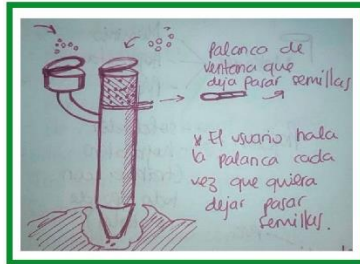 Palanca de
ventana que
deja pasar semillas
* El usuario hala
la palanca cada
vez que quiera
dejar pasar
semillas.